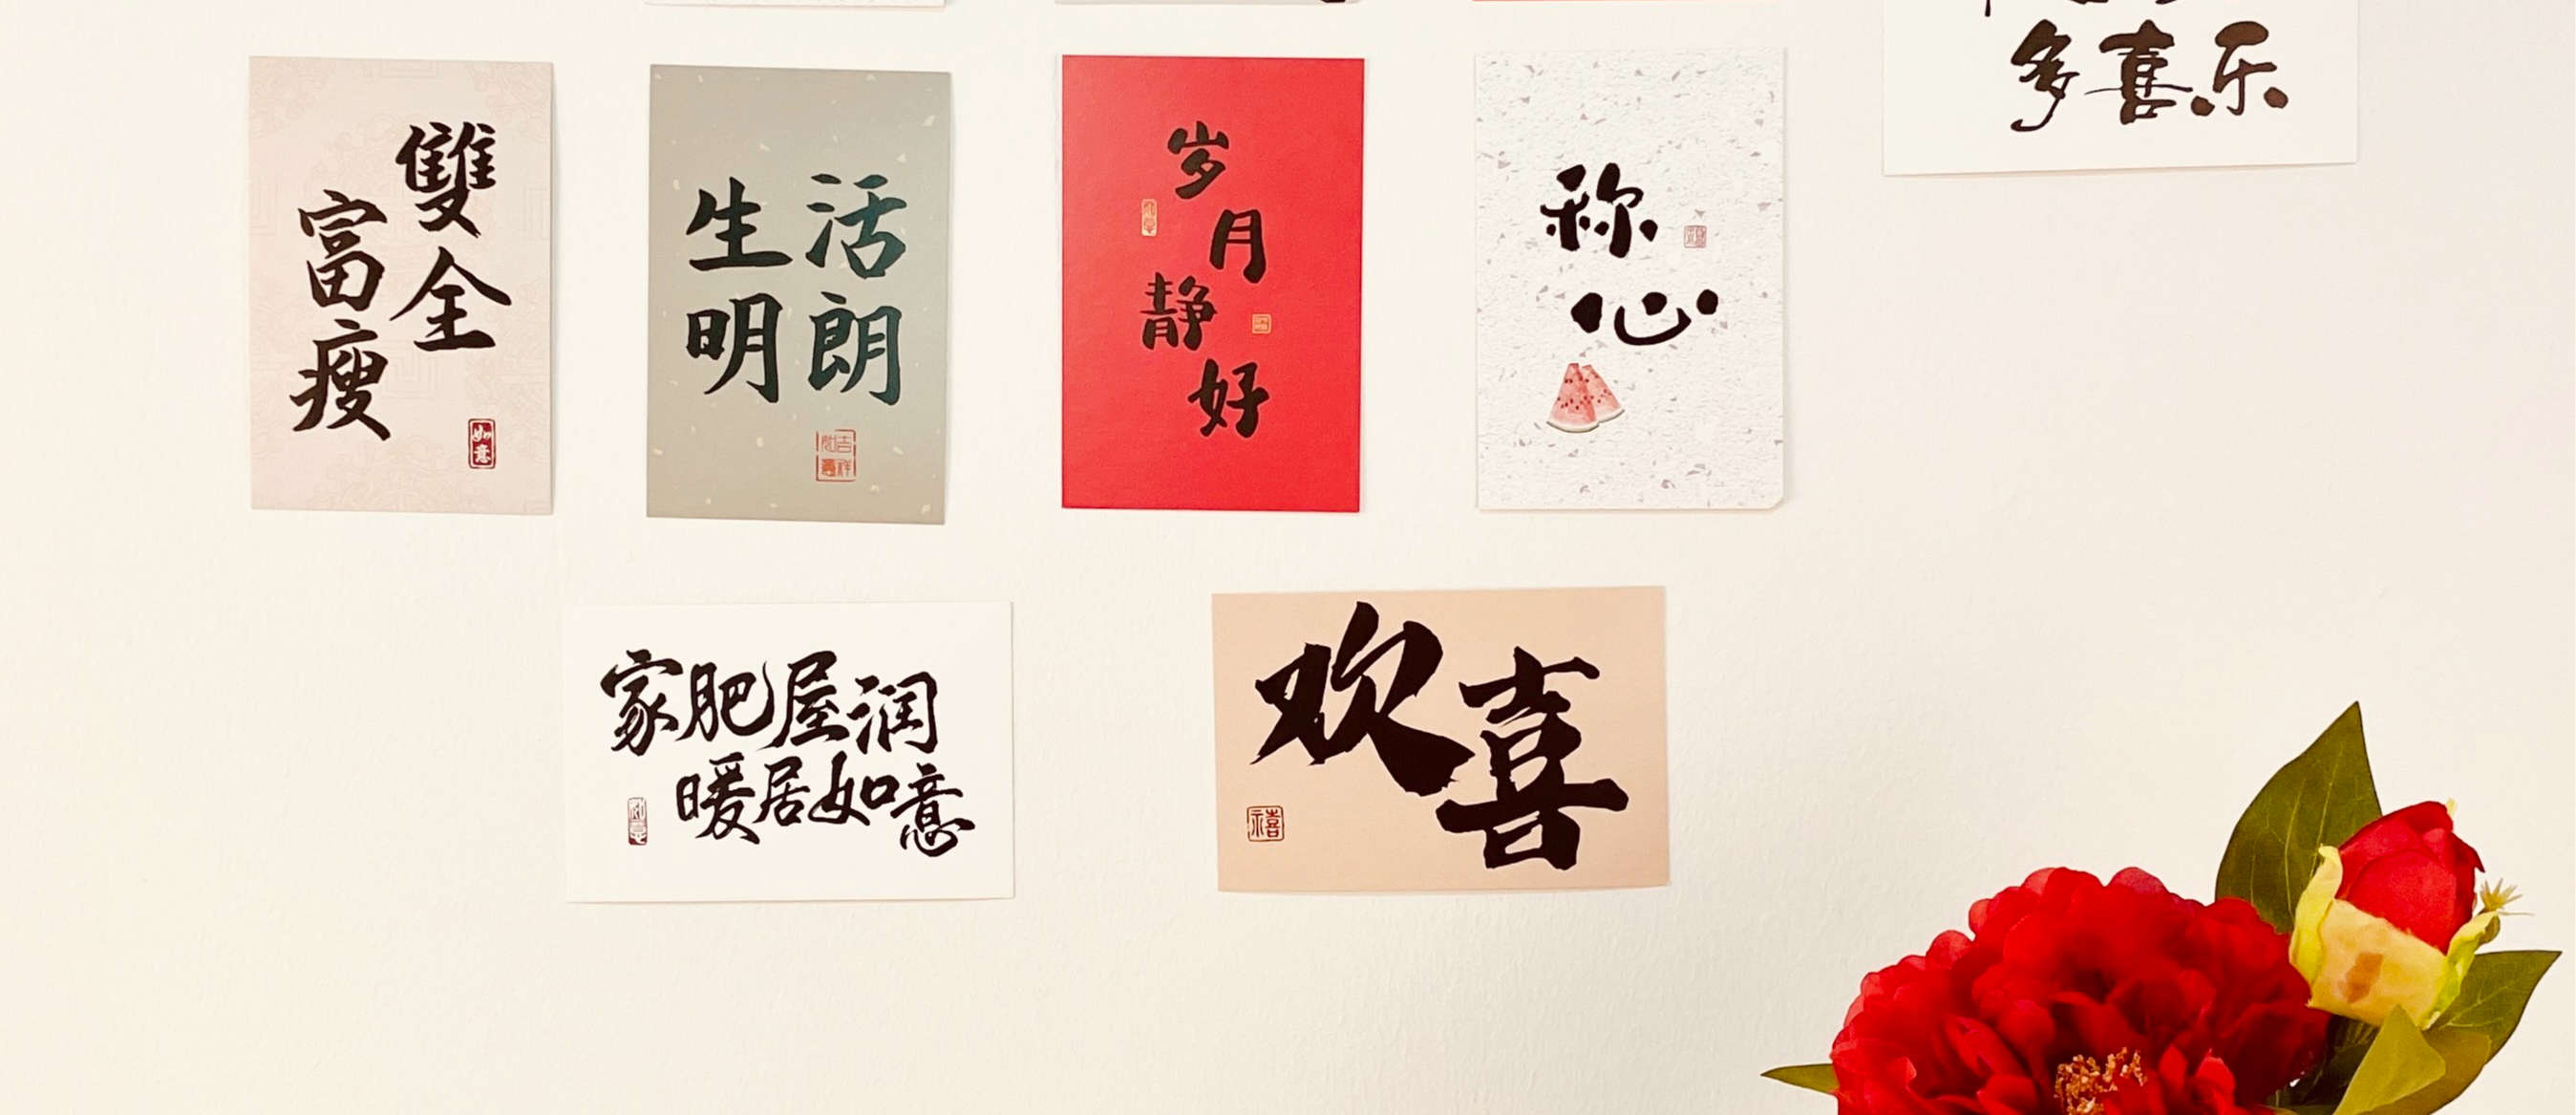 多喜乐
富瘦
雙全
如意
生活
明朗
吉祥
如意
岁月
静好
称
心
家肥屋润
暖居如意
如意
欢喜
禧